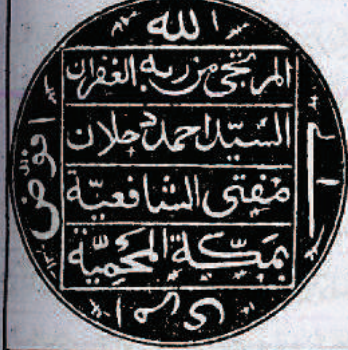 الله
المرتجى من ربه الغفران
السيّد احمد دحلان
مفتى الشافعيّة
بمكّة المحميّة
افوض
امرى
الى